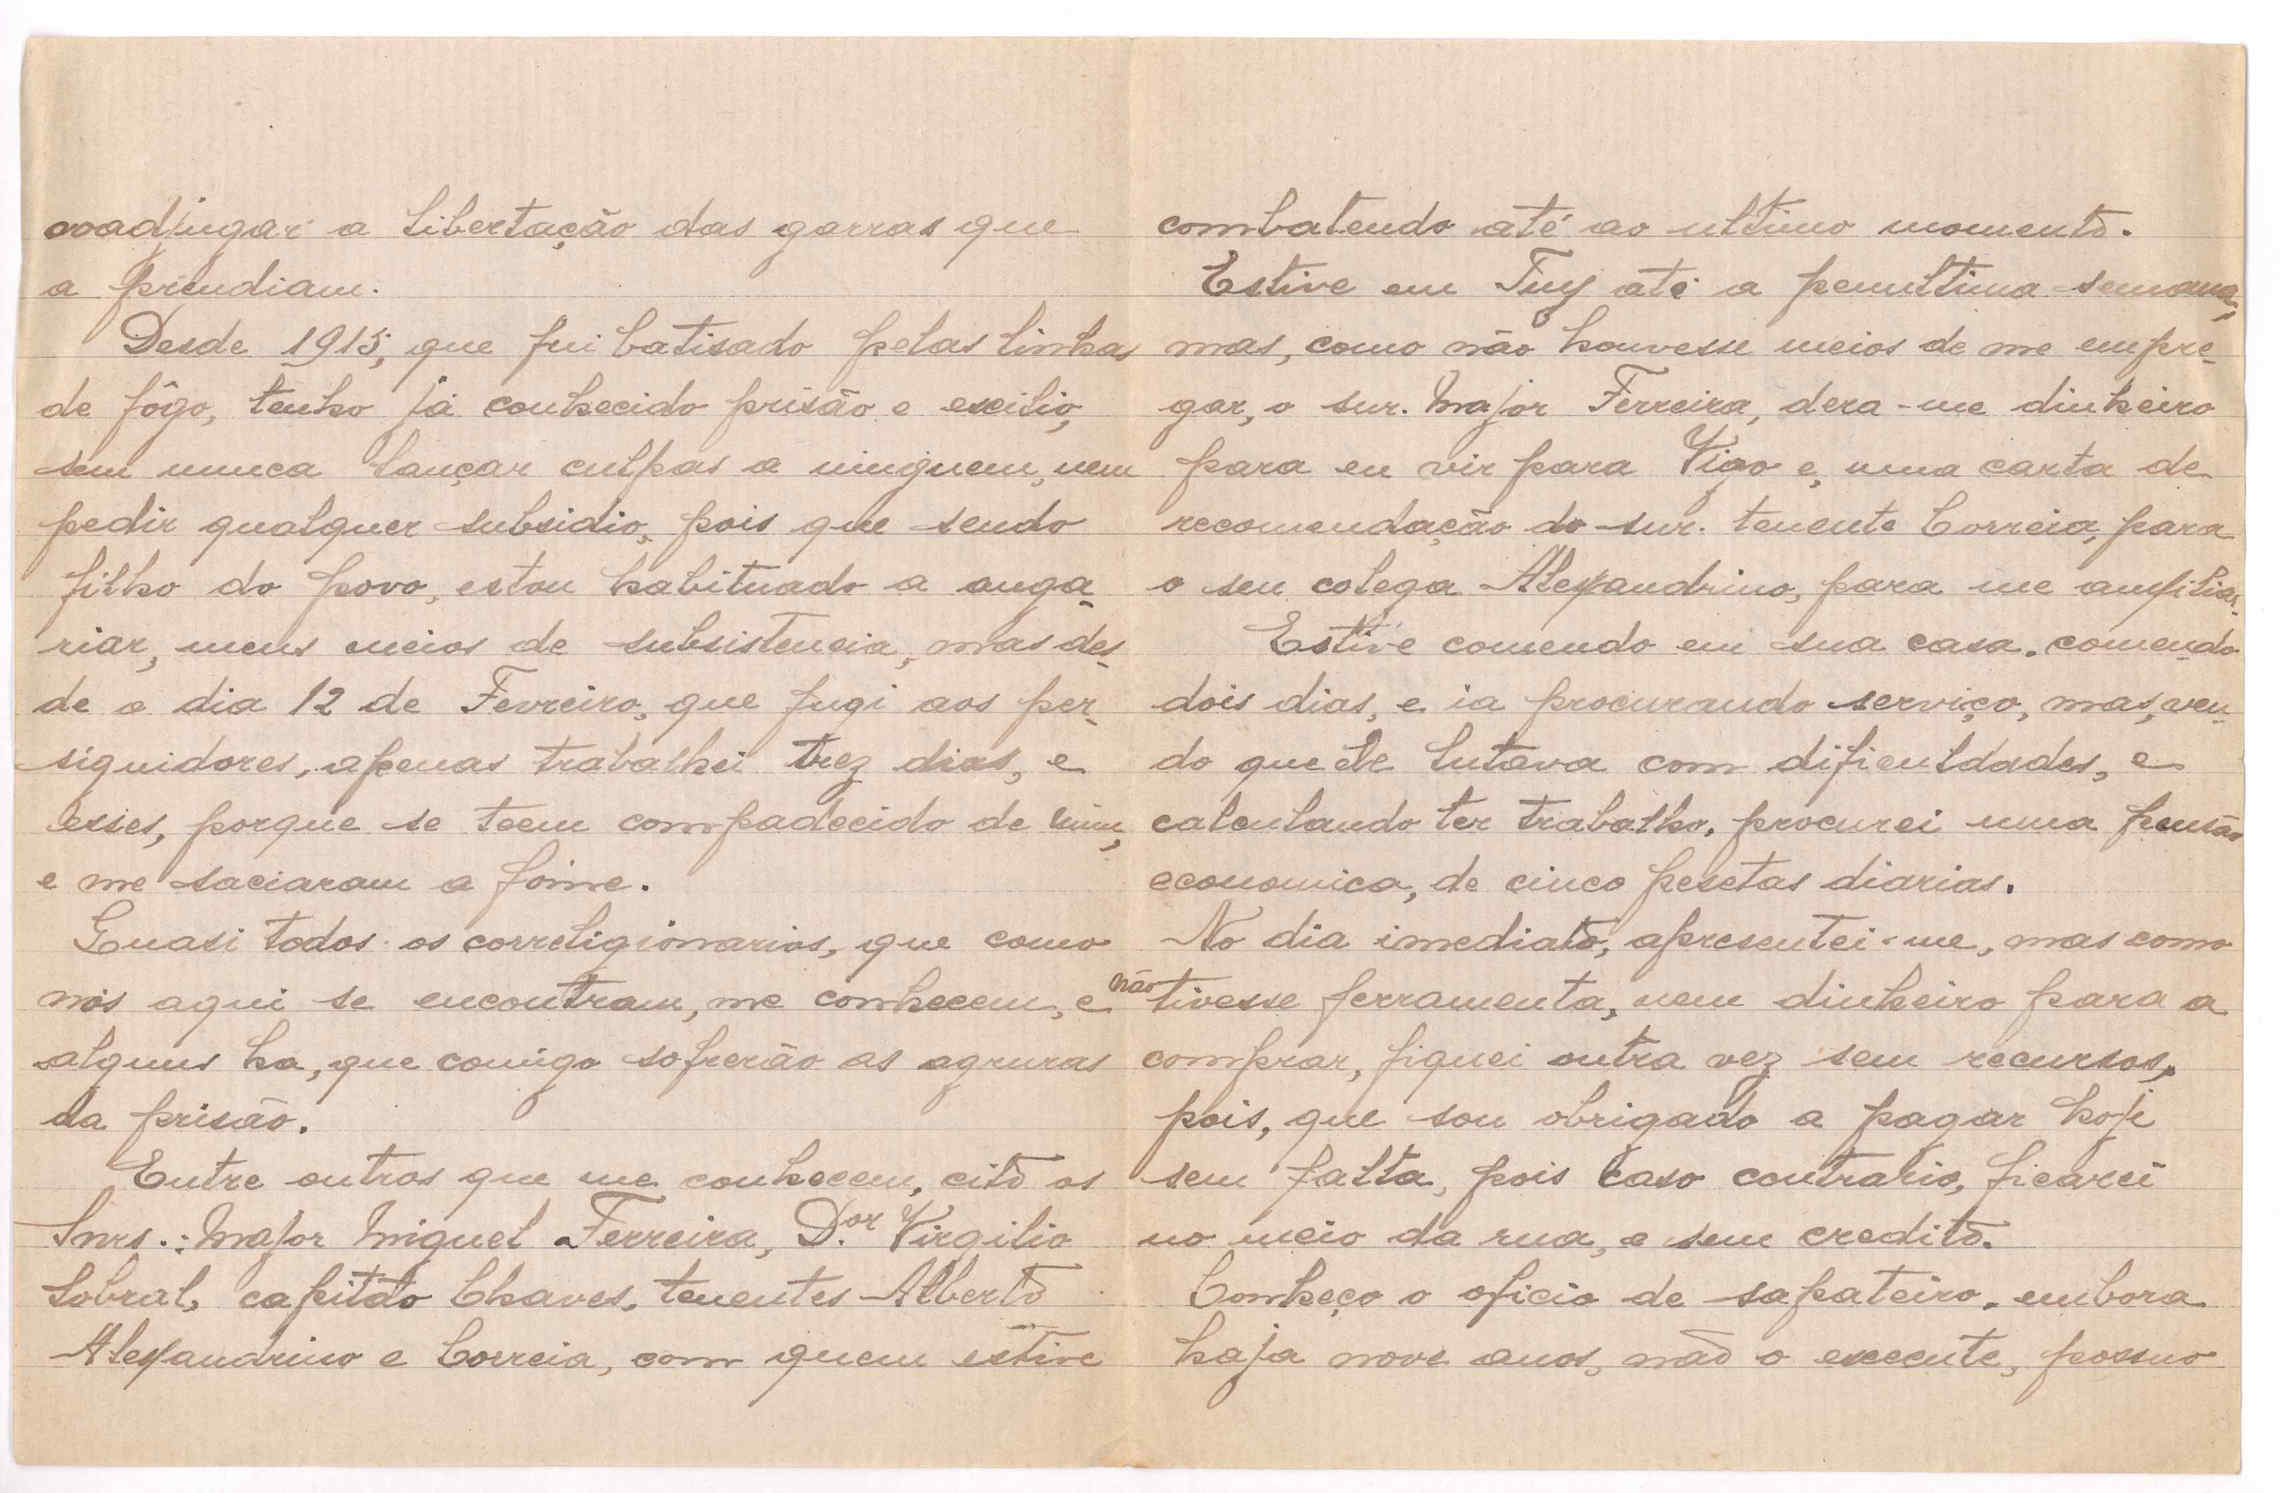 a libertação das garras que
a prendiam.
Desde 1915, que fui batisado pelas linhas
de fôgo, tenho já conhecido prisão e exilio,
sem nunca lançar culpas a ninguem, nem
pedir qualquer subsidio, pois que sendo
filho do povo, estou habituado a anga-
riar, meus meios de subsistencia, mas des-
de o dia 12 de Fevreiro, que fugi aos per-
siguidores, apenas trabalhei trez dias, e
esses, porque se teem compadecido de mim,
e me saciaram a fóme.
Quasi todos os correligionarios, que como
nós aqui se encontram, me conhecem, e
alguns ha, que comigo sofrerão as agruras
da prisão.
Entre outros que me conhecem, cito os
Snrs.: Major Miguel Ferreira, D.or Virgilio
Sobral, capitão Chaves, tenentes Alberto
Alexandrino e Correia, com quem estive
combatendo até ao ultimo momento.
Estive em Tuy até a penultima semana,
mas, como não houvesse meios de me empre-
gar, o snr. Major Ferreira, dera-me dinheiro
para eu vir para Vigo e, uma carta de
recomendação do snr. tenente Correia, para
o seu colega Alexandrino, para me
Estive comendo em sua casa, comendo
dois dias, e ia procurando serviço, mas, ven-
do que ele lutava com dificuldades, e
calculando ter trabalho, procurei uma pensão
economica, de cinco pesetas diarias.
No dia imediato, apresentei-me, mas como
não tivesse ferramenta, nem dinheiro para a
comprar, fiquei outra vez sem recursos,
pois, que sou obrigado a pagar hoje
sem falta, pois caso contrario, ficarei
no meio da rua, e sem credito.
Conheço o oficio de sapateiro, embora
haja nove anos, não o execute, possuo